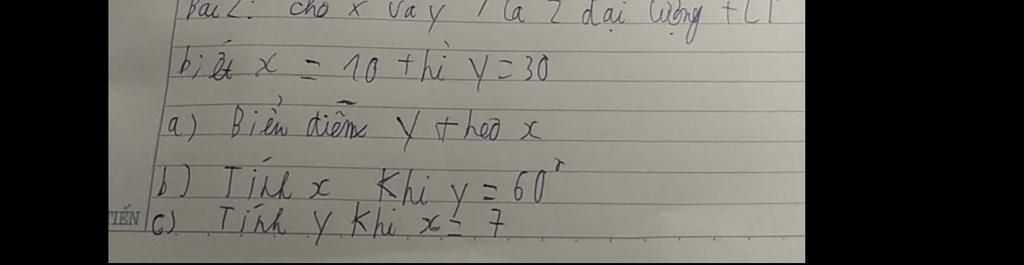 Bài 2: Cho x và y là 2 đại lượng TLT
biết x = 10 thì y = 30
a) Biểu diễn y theo x
b) Tính x khi y = 60
TIẾN c) Tính y khi x = 7